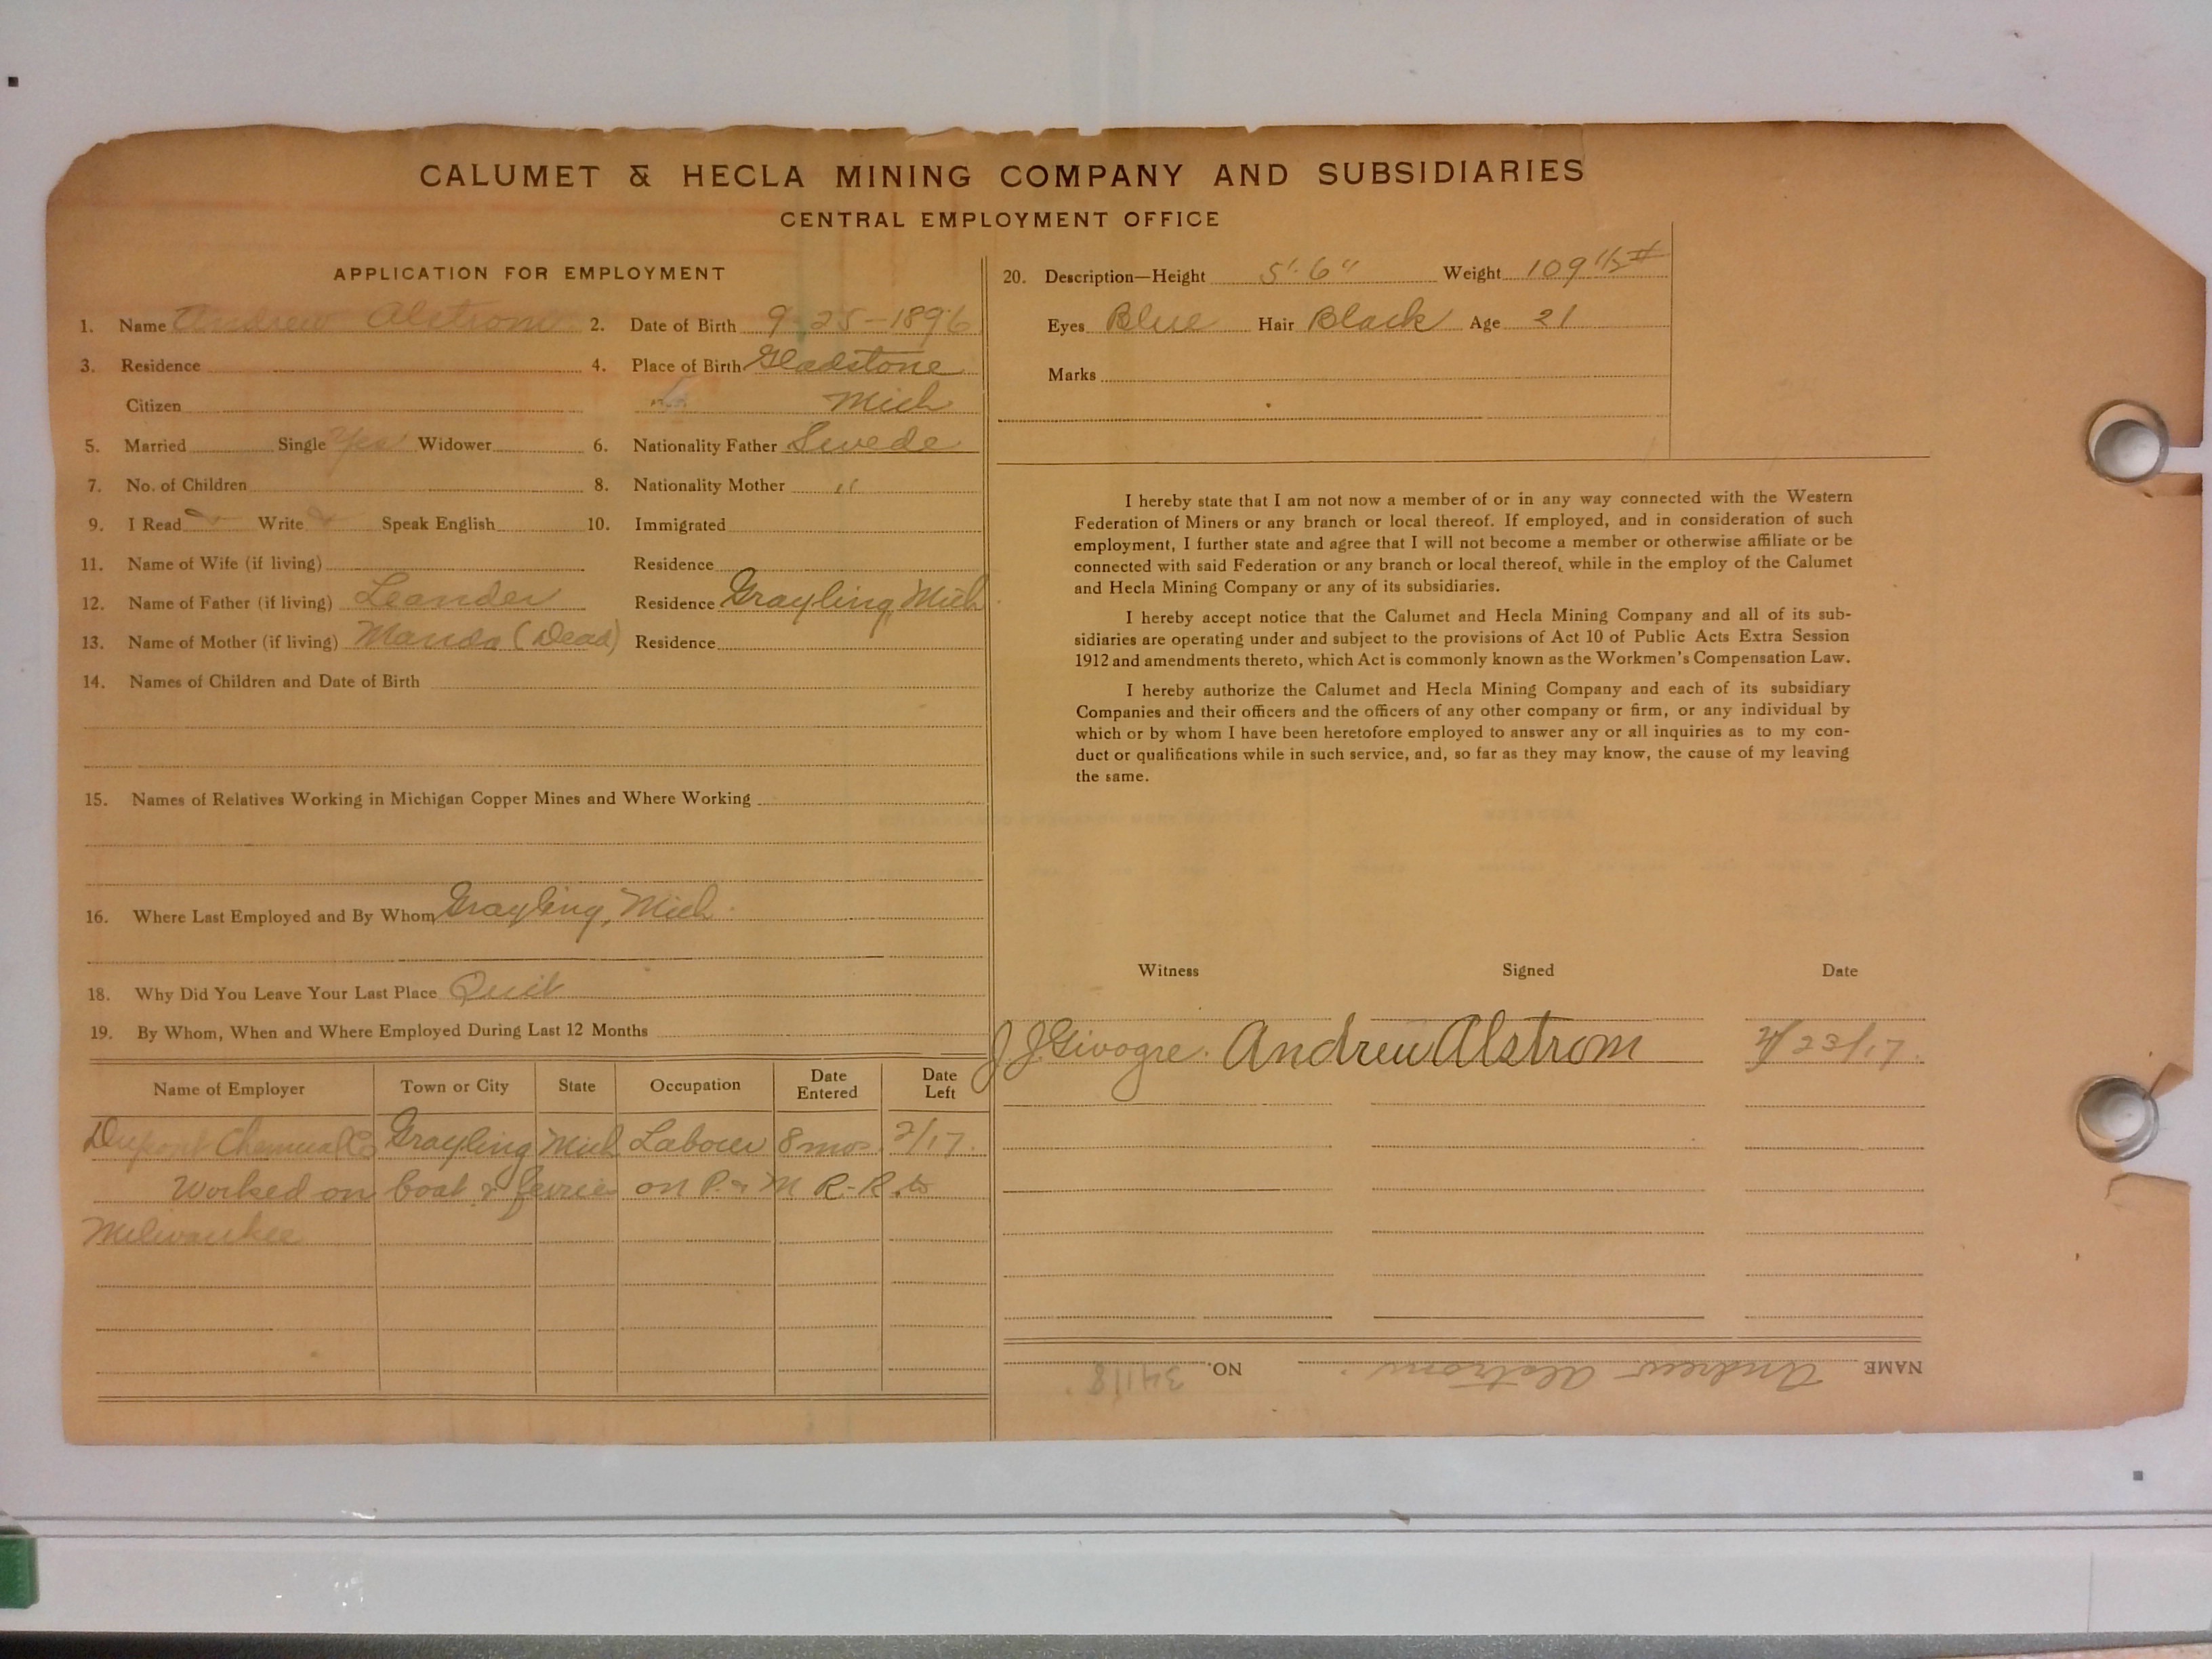 CALUMET & HECLA MINING COMPANY AND SUBSIDIARIES
CENTRAL EMPLOYMENT OFFICE
APPLICATION FOR EMPLOYMENT
1. Name Andrew Alstrom 2. Date of Birth 9-25-1896
3. Residence 4. Place of Birth Gladstone
Citizen Mich
5. Married Single Yes Widower 6. Nationality Father Swede
7. No. of Children 8. Nationality Mother "
9. I Read Write Speak English 10. Immigrated
11. Name of Wife (if living) Residence
12. Name of Father (if living) Leander Residence Grayling, Mich
13. Name of Mother (if living) Manda (Dead) Residence
14. Names of Children and Date of Birth
15. Names of Relatives Working in Michigan Copper Mines and Where Working
16. Where Last Employed and By Whom Grayling, Mich.
18. Why Did You Leave Your Last Place Quit
19. By Whom, When and Where Employed During Last 12 Months
Name of Employer Town or City State Occupation Date Entered Date Left
Dupont Chemical Co Grayling Mich Labour 8 mos. 2/17.
Worked on boat & ferries on P. & M R-R. to
Milwaukee
20. Description—Height 5'-6" Weight 109 1/2 #
Eyes Blue Hair Black Age 21
Marks
I hereby state that I am not now a member of or in any way connected with the Western
Federation of Miners or any branch or local thereof. If employed, and in consideration of such
employment, I further state and agree that I will not become a member or otherwise affiliate or be
connected with said Federation or any branch or local thereof, while in the employ of the Calumet
and Hecla Mining Company or any of its subsidiaries.
I hereby accept notice that the Calumet and Hecla Mining Company and all of its sub-
sidiaries are operating under and subject to the provisions of Act 10 of Public Acts Extra Session
1912 and amendments thereto, which Act is commonly known as the Workmen's Compensation Law.
I hereby authorize the Calumet and Hecla Mining Company and each of its subsidiary
Companies and their officers and the officers of any other company or firm, or any individual by
which or by whom I have been heretofore employed to answer any or all inquiries as to my con-
duct or qualifications while in such service, and, so far as they may know, the cause of my leaving
the same.
Witness Signed Date
J. J. Givogre. Andrew Alstrom /23/17.
NAME Andrew Alstrom. NO. 34118.